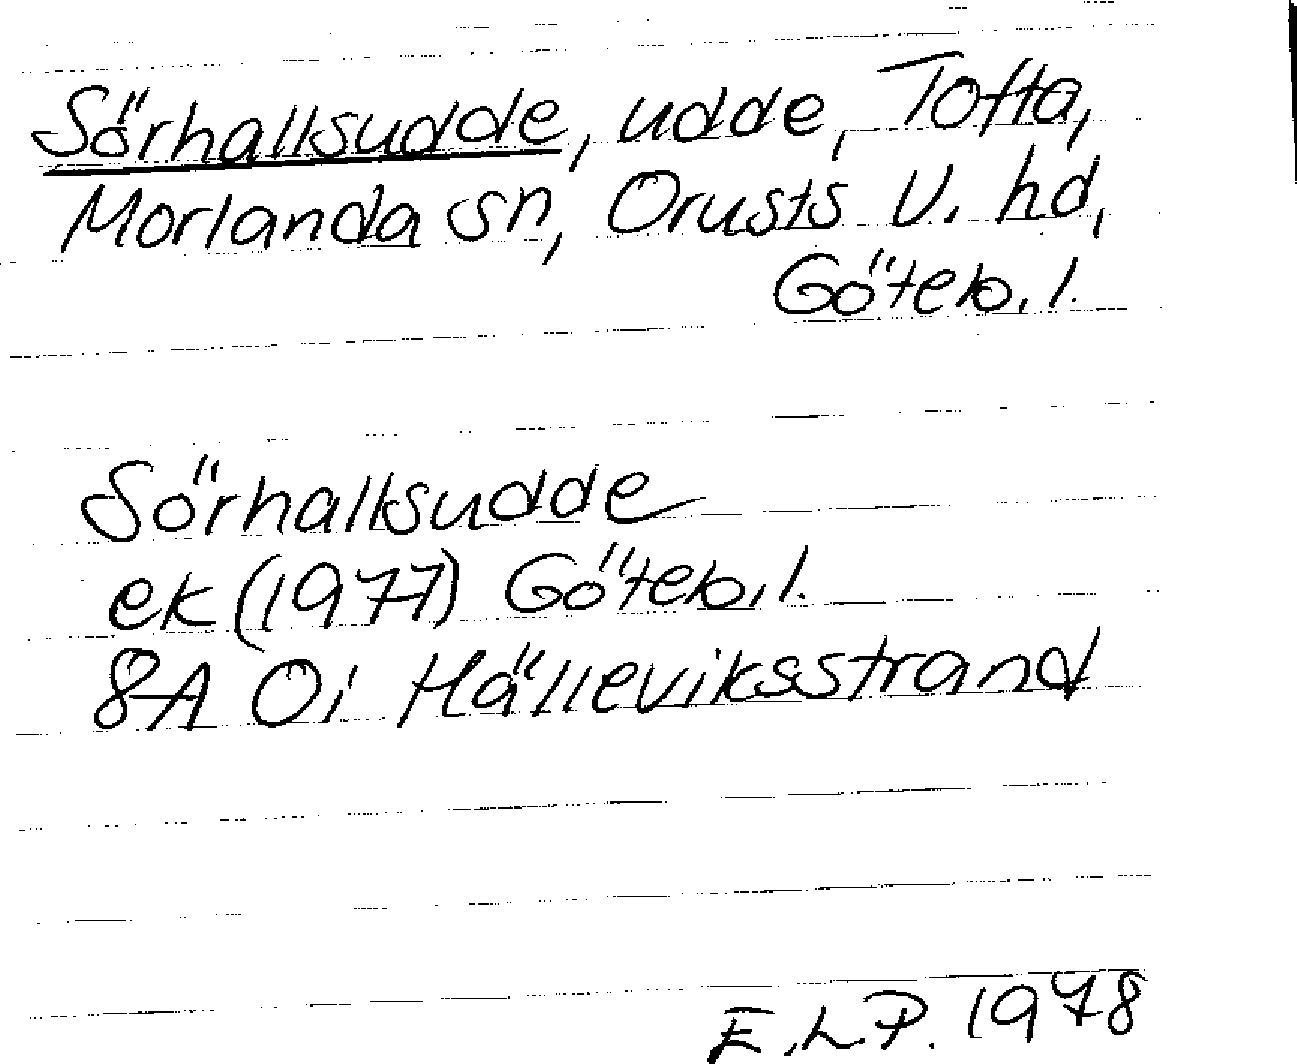 Sörhallsudde, udde, Tofta,
Morlanda sn, Orusts V. hd,
Göteb. l.
Sörhallsudde
ek (1977) Göteb. l.
8A 0i Hälleviksstrand
E.L.P. 1978